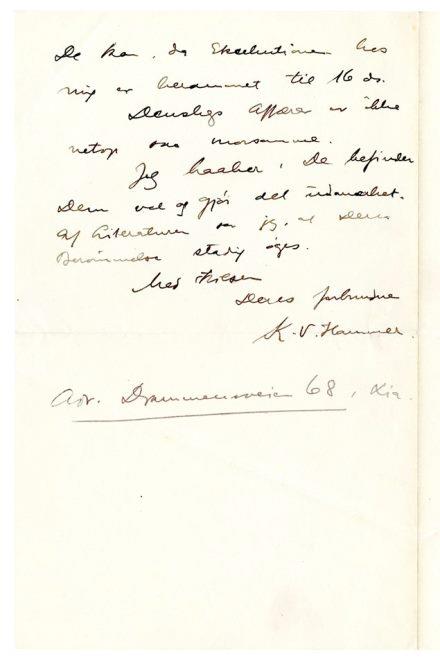 De kan, da Exekutionen hos
mig er berammet til 16 ds.
Denslags Affærer er ikke
netop saa morsomme.
Jeg haaber, De befinder
Dem vel og gjør det udmærket.
Af Literaturen ser jeg, at Deres
Berömmelse stadig øges.
Med Hilsen
Deres forbundne
K. V. Hammer.
Adr. Drammensveien 68, Kia.